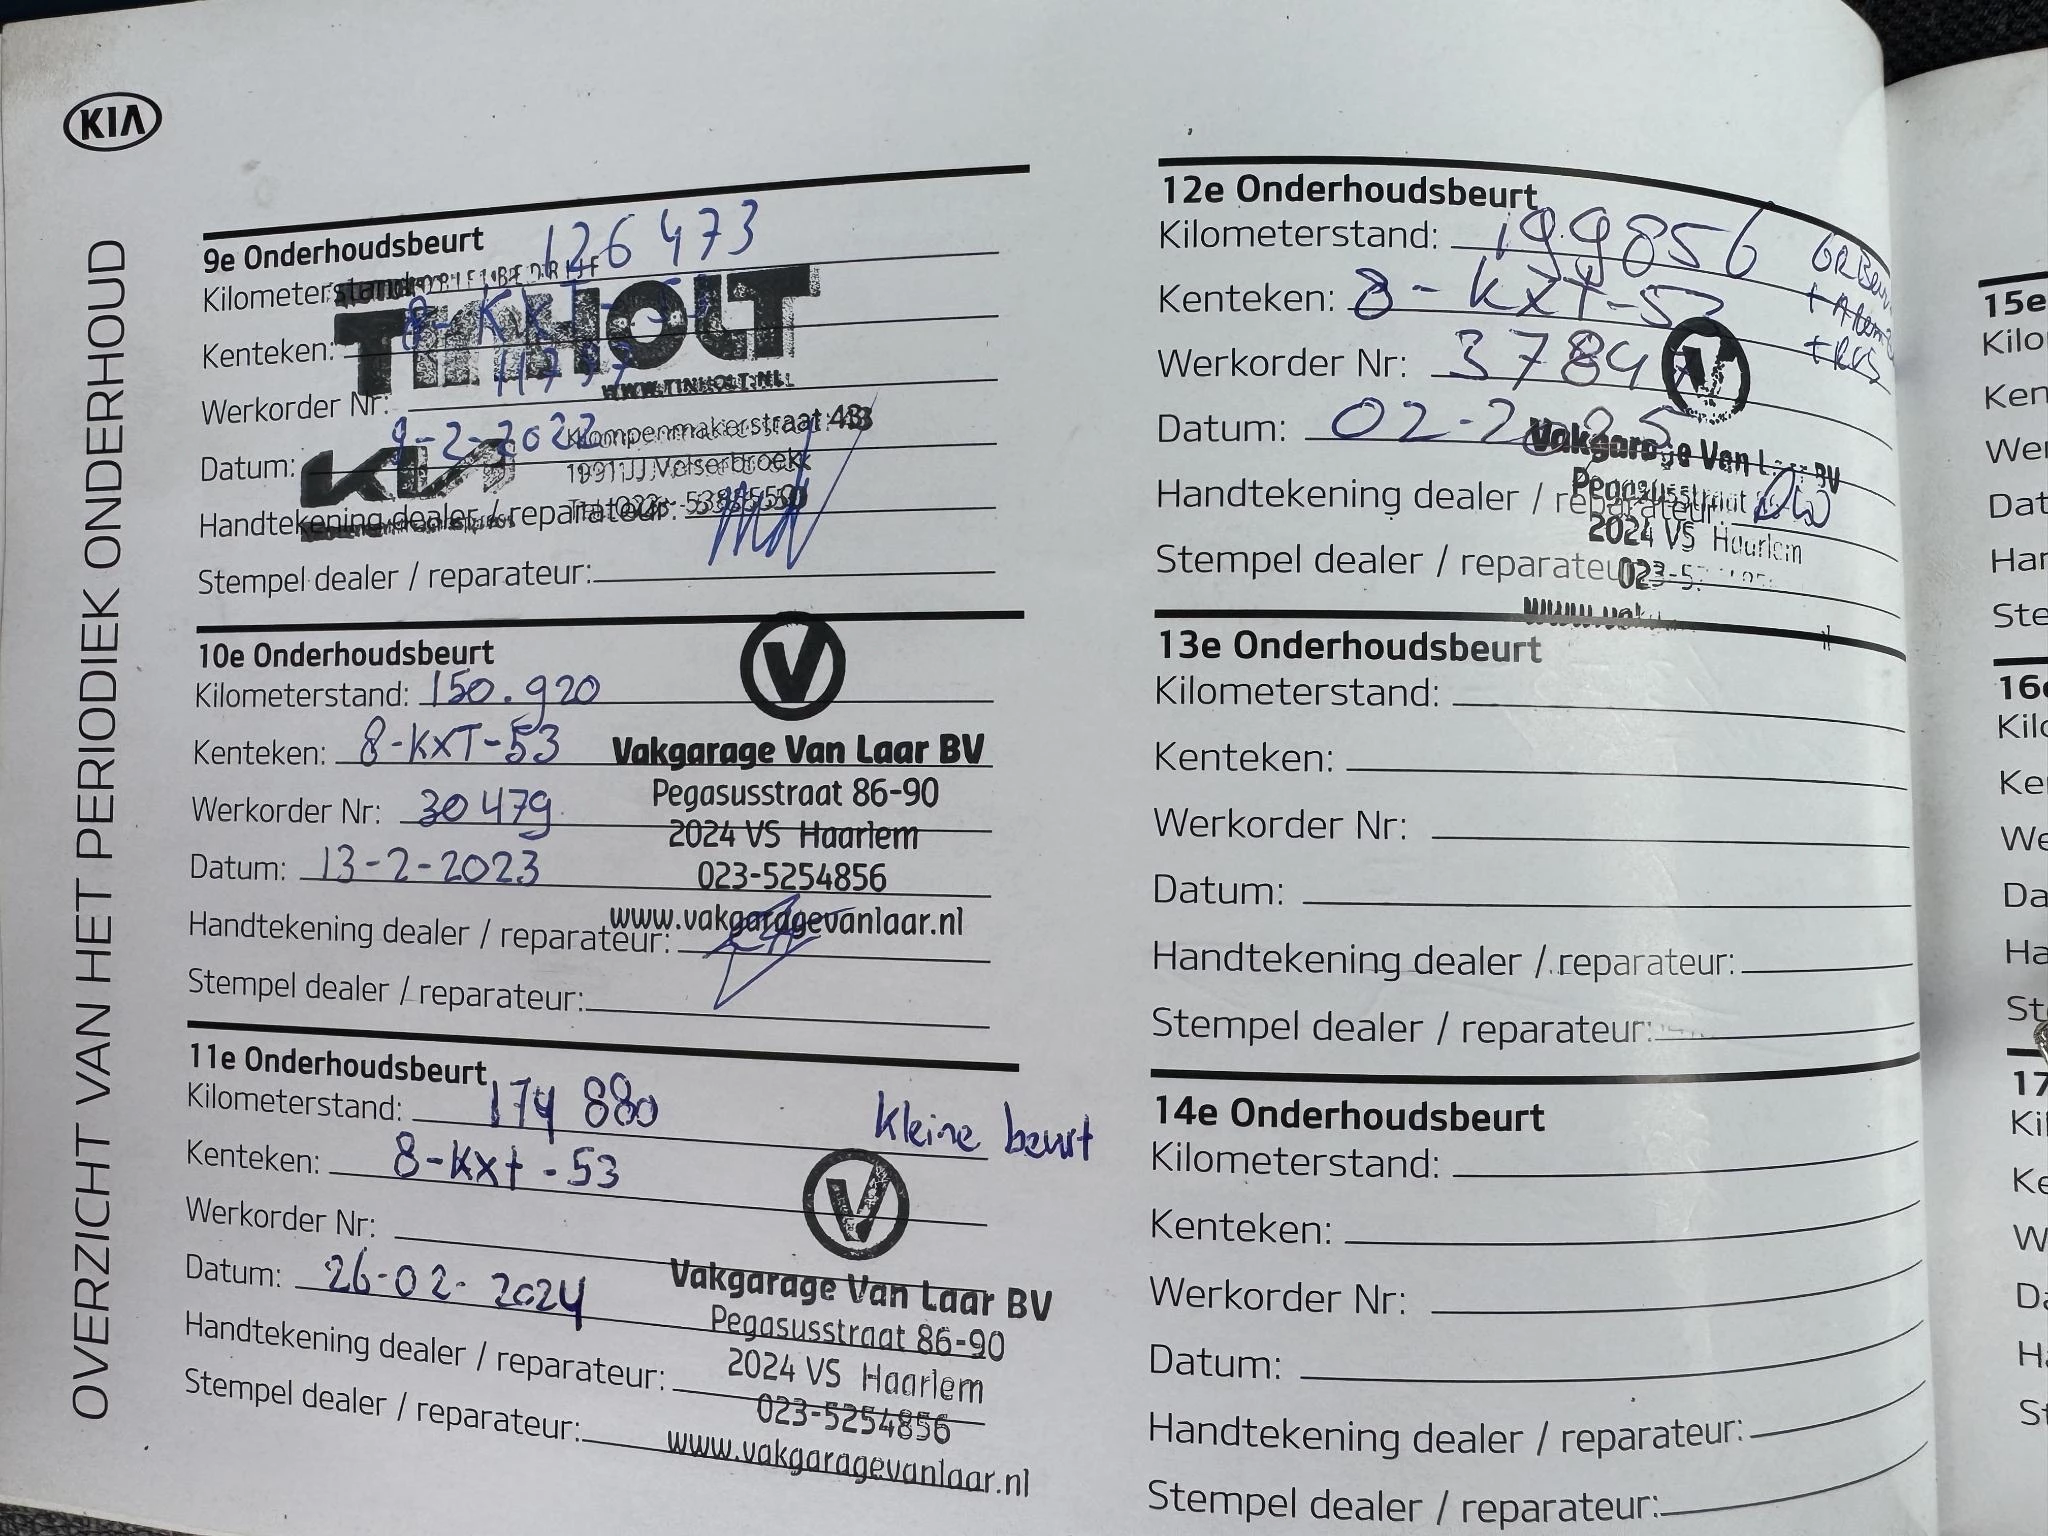 KIA
OVERZICHT VAN HET PERIODIEK ONDERHOUD
9e Onderhoudsbeurt
Kilometerstand: 126473
Kenteken: 8-KXT-53
TINHOLT
WWW.TINHOLT.NL
Werkorder Nr:
Klompenmakerstraat 43
Datum: 9-2-2022
KIA
1991JJ Velserbroek
Handtekening dealer / reparateur:
Stempel dealer / reparateur:
10e Onderhoudsbeurt
Kilometerstand: 150.920
Kenteken: 8-KXT-53
Werkorder Nr: 30479
Datum: 13-2-2023
Handtekening dealer / reparateur:
Stempel dealer / reparateur:
V
Vakgarage Van Laar BV
Pegasusstraat 86-90
2024 VS Haarlem
023-5254856
www.vakgaragevanlaar.nl
11e Onderhoudsbeurt
Kilometerstand: 174 880
kleine beurt
Kenteken: 8-KXT-53
Werkorder Nr:
Datum: 26-02-2024
Handtekening dealer / reparateur:
Stempel dealer / reparateur:
V
Vakgarage Van Laar BV
Pegasusstraat 86-90
2024 VS Haarlem
023-5254856
www.vakgaragevanlaar.nl
12e Onderhoudsbeurt
Kilometerstand: 199856
Kenteken: 8-KXT-53
Werkorder Nr: 3784
Datum: 02-2025
Handtekening dealer / reparateur:
Stempel dealer / reparateur:
V
Vakgarage Van Laar BV
Pegasusstraat
2024 VS Haarlem
13e Onderhoudsbeurt
Kilometerstand:
Kenteken:
Werkorder Nr:
Datum:
Handtekening dealer / reparateur:
Stempel dealer / reparateur:
14e Onderhoudsbeurt
Kilometerstand:
Kenteken:
Werkorder Nr:
Datum:
Handtekening dealer / reparateur:
Stempel dealer / reparateur:
15e
Kilo
Ken
Wer
Dat
Har
Ste
16e
Kilo
Ke
We
Da
Ha
St
17
Ki
Ke
W
Da
Ha
St